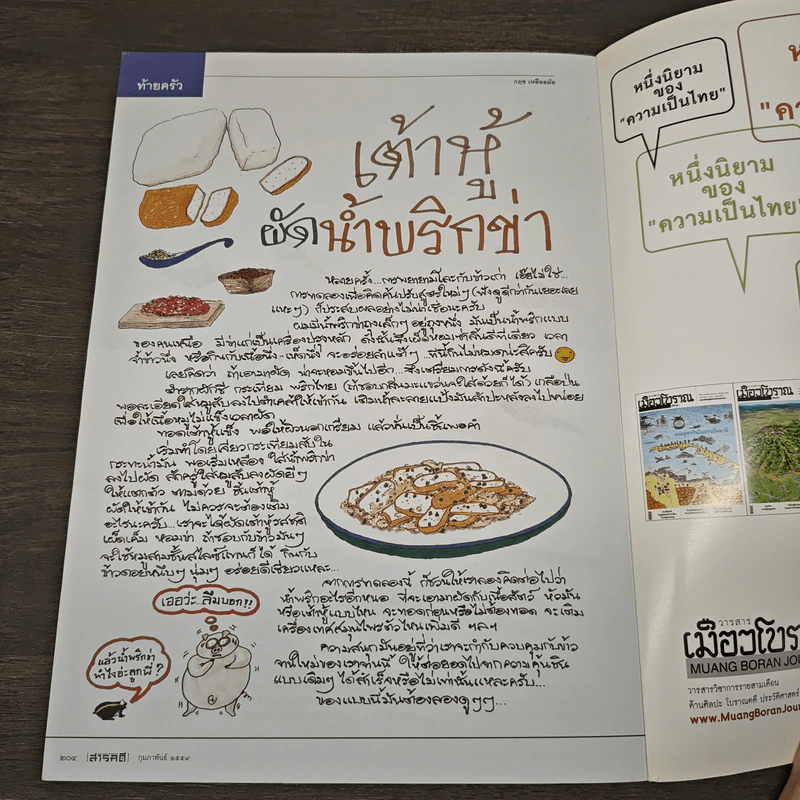 ท้ายครัว
กฤช เหลือลมัย
เต้าหู้
ผัดน้ำพริกข่า
หลายครั้ง...การพยายามโละกับข้าวเก่า เอ๊ยไม่ใช่...
การทดลองเพื่อคิดค้นปรับสูตรใหม่ๆ (ฟังดูดีกว่ากันเยอะเลย
แหะๆ) ก็ประสบผลอย่างไม่น่าเชื่อนะครับ
ผมมีน้ำพริกข่าถุงเล็กๆ อยู่ถุงหนึ่ง มันเป็นน้ำพริกแบบ
ของคนเหนือ มีข่าแก่เป็นเครื่องปรุงหลัก ดังนั้นจึงเผ็ดหอมซ่าลิ้นดีทีเดียว เวลา
จ้ำข้าวนึ่ง หรือกินกับเนื้อนึ่ง-เห็ดนึ่ง จะอร่อยล้ำแท้ๆ ทีนี้กินไม่หมดน่ะสิครับ
เลยคิดว่า ถ้าเอามาผัด น่าจะหอมขึ้นไปอีก...จึงเตรียมการดังนี้ครับ
ตำรากผักชี กระเทียม พริกไทย (ถ้าชอบกลิ่นมะแขว่นจะใส่ด้วยก็ได้) เกลือป่น
พอละเอียดใส่หมูสับลงไปตำเคล้าให้เข้ากัน เติมน้ำละลายแป้งมันสำปะหลังลงไปหน่อย
เพื่อให้เนื้อหมูไม่แข็งเวลาผัด
ทอดเต้าหู้แข็ง พอให้ผิวนอกเกรียม แล้วหั่นเป็นชิ้นพอคำ
เริ่มทำโดยเจียวกระเทียมสับใน
กระทะน้ำมัน พอเริ่มเหลือง ใส่น้ำพริกข่า
ลงไปผัด สักครู่ใส่หมูสับลงผัดยีๆ
ให้แตกตัว ตามด้วย ชิ้นเต้าหู้
ผัดให้เข้ากัน ไม่ควรจะต้องเติม
อะไรนะครับ...เราจะได้ผัดเต้าหู้รสชาติ
เผ็ดเค็ม หอมข่า ถ้าชอบกับข้าวมันๆ
จะใช้หมูสามชั้นสไลซ์แทนก็ได้ กินกับ
ข้าวดอยหนึบๆ นุ่มๆ อร่อยดีเชียวแหละ...
จากการทดลองนี้ ก็ชวนให้เราลองคิดต่อไปว่า
น้ำพริกอะไรอีกหนอ ที่จะเอามาผัดกับเนื้อสัตว์ หัวมัน
หรือเต้าหู้แบบไหน จะทอดก่อนหรือไม่ต้องทอด จะเติม
เครื่องเทศสมุนไพรตัวไหนเพิ่มดี ฯลฯ
ความสนุกมันอยู่ที่ว่าเราจะกำกับควบคุมกับข้าว
จานใหม่ของเราจานนี้ ให้ต่อยอดไปจากความคุ้นชิน
แบบเดิมๆ ได้สำเร็จหรือไม่เท่านั้นแหละครับ...
ของแบบนี้มันต้องลองดูๆๆ...
เออว่ะ..ลืมบอก!!
แล้วน้ำพริกข่า
ทำไงอ่ะลูกพี่?
๒๐๔ [สารคดี] กุมภาพันธ์ ๒๕๕๙
หนึ่งนิยาม
ของ
"ความเป็นไทย"
หนึ่งนิยาม
ของ
"ความเป็นไทย"
เมืองโบราณ
เมืองโบราณ
วารสาร
เมืองโบราณ
MUANG BORAN JOU
วารสารวิชาการรายสามเดือน
ด้านศิลปะ โบราณคดี ประวัติศาสตร์
www.MuangBoranJour